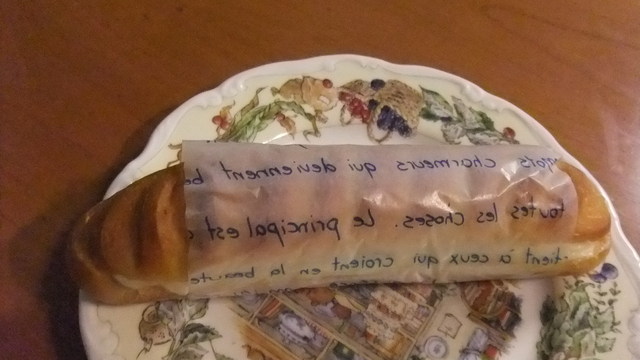 mots charmeurs qui deviennent
toutes les choses. Le principal est
tient à ceux qui croient en la beauté